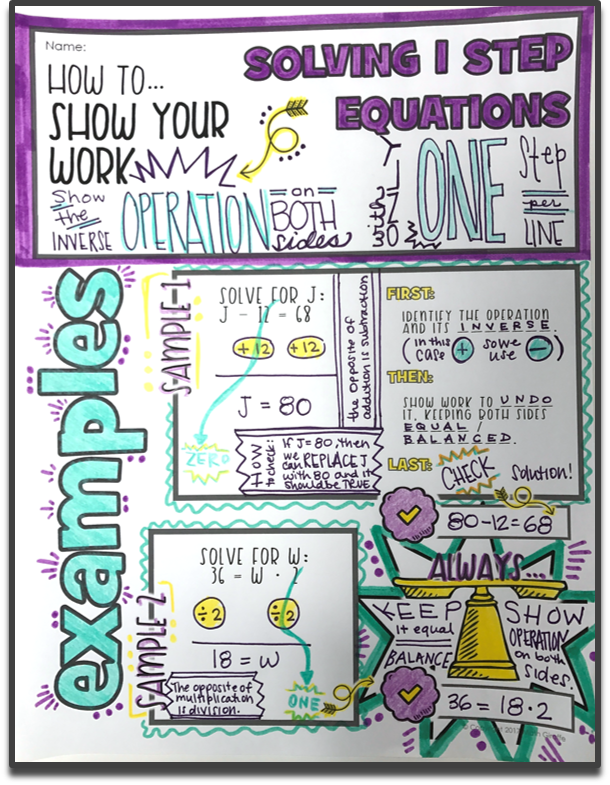 Name:
HOW TO...
SHOW YOUR
WORK
SOLVING 1 STEP
EQUATIONS
Show
the
INVERSE
OPERATION
on
BOTH
sides
ONE
Step
per
LINE
examples
SAMPLE-1
SOLVE FOR J:
J - 12 = 68
+12 +12
J = 80
ZERO
the opposite of
addition is subtraction
HOW
to check:
If J=80, then
we can REPLACE J
with 80 and it
should be TRUE
FIRST:
IDENTIFY THE OPERATION
AND ITS INVERSE.
(in this case + so we use -)
THEN:
SHOW WORK TO UNDO
IT, KEEPING BOTH SIDES
EQUAL /
BALANCED.
LAST: CHECK Solution!
80-12=68
SAMPLE-2
SOLVE FOR W:
36 = W · 2
÷2 ÷2
18 = W
The opposite of
multiplication
is division.
ONE
ALWAYS...
KEEP
it equal
BALANCE
SHOW
OPERATION
on both
sides.
36 = 18·2